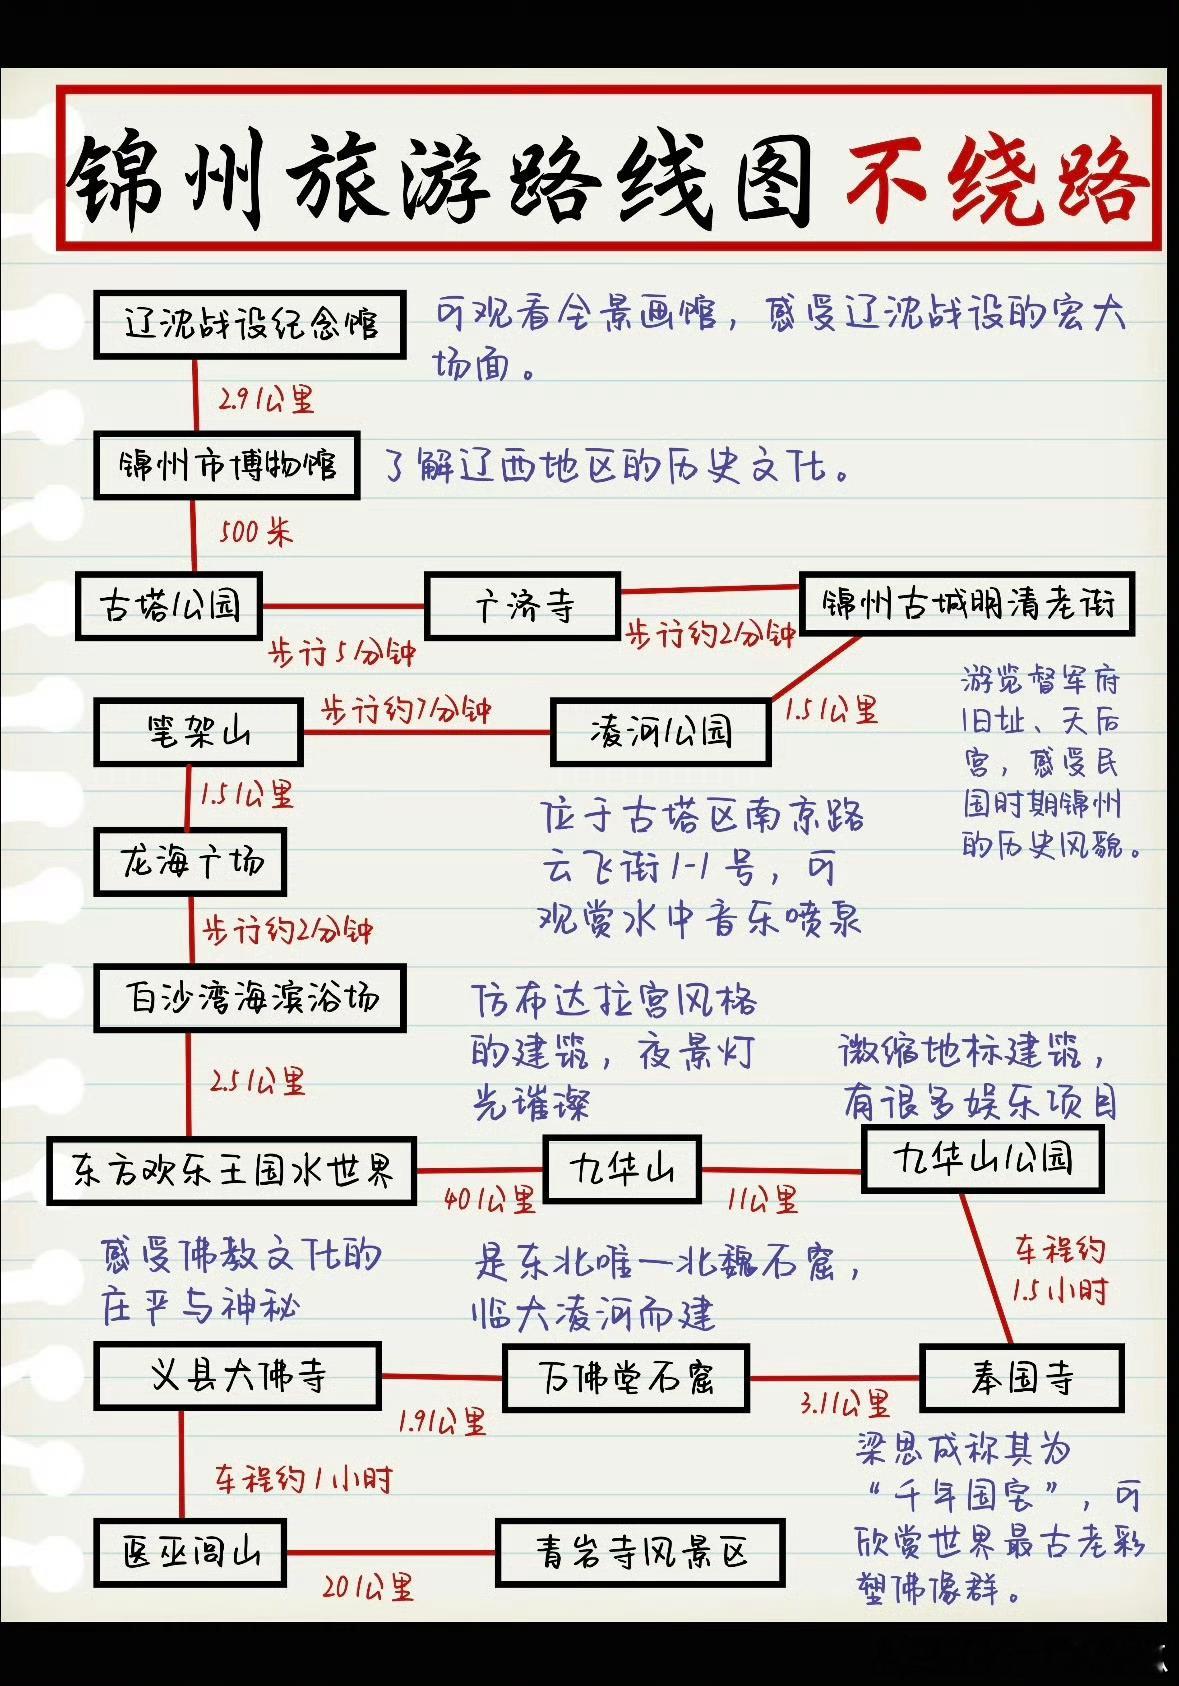 锦州旅游路线图不绕路
辽沈战役纪念馆
可观看全景画馆，感受辽沈战役的宏大
场面。
2.9公里
锦州市博物馆
了解辽西地区的历史文化。
500米
古塔公园
步行5分钟
广济寺
步行约2分钟
锦州古城明清老街
游览督军府
旧址、天后
宫，感受民
国时期锦州
的历史风貌。
1.5公里
凌河公园
位于古塔区南京路
云飞街1-1号，可
观赏水中音乐喷泉
步行约7分钟
笔架山
1.5公里
龙海广场
步行约2分钟
白沙湾海滨浴场
2.5公里
东方欢乐王国水世界
40公里
仿布达拉宫风格
的建筑，夜景灯
光璀璨
九华山
1公里
微缩地标建筑，
有很多娱乐项目
九华山公园
车程约
1.5小时
奉国寺
梁思成称其为
“千年国宝”，可
欣赏世界最古老彩
塑佛像群。
3.1公里
是东北唯一北魏石窟，
临大凌河而建
万佛堂石窟
1.9公里
感受佛教文化的
庄严与神秘
义县大佛寺
车程约1小时
医巫闾山
20公里
青岩寺风景区